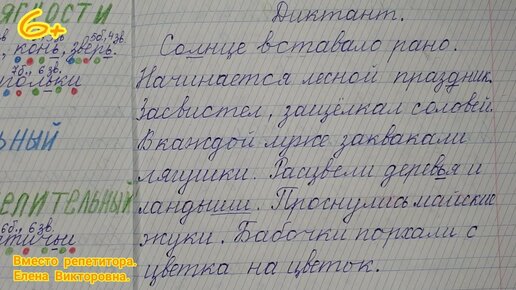 6+
ягкости
, конь, зверь.
5б, 4зв.
7б., 6зв.
гольки
ьный
елительный
6б., 6зв.
тичьи
Вместо репетитора.
Елена Викторовна.
Диктант.
Солнце вставало рано.
Начинается лесной праздник.
Засвистел, защёлкал соловей.
В каждой луже заквакали
лягушки. Расцвели деревья и
ландыши. Проснулись майские
жуки. Бабочки порхали с
цветка на цветок.